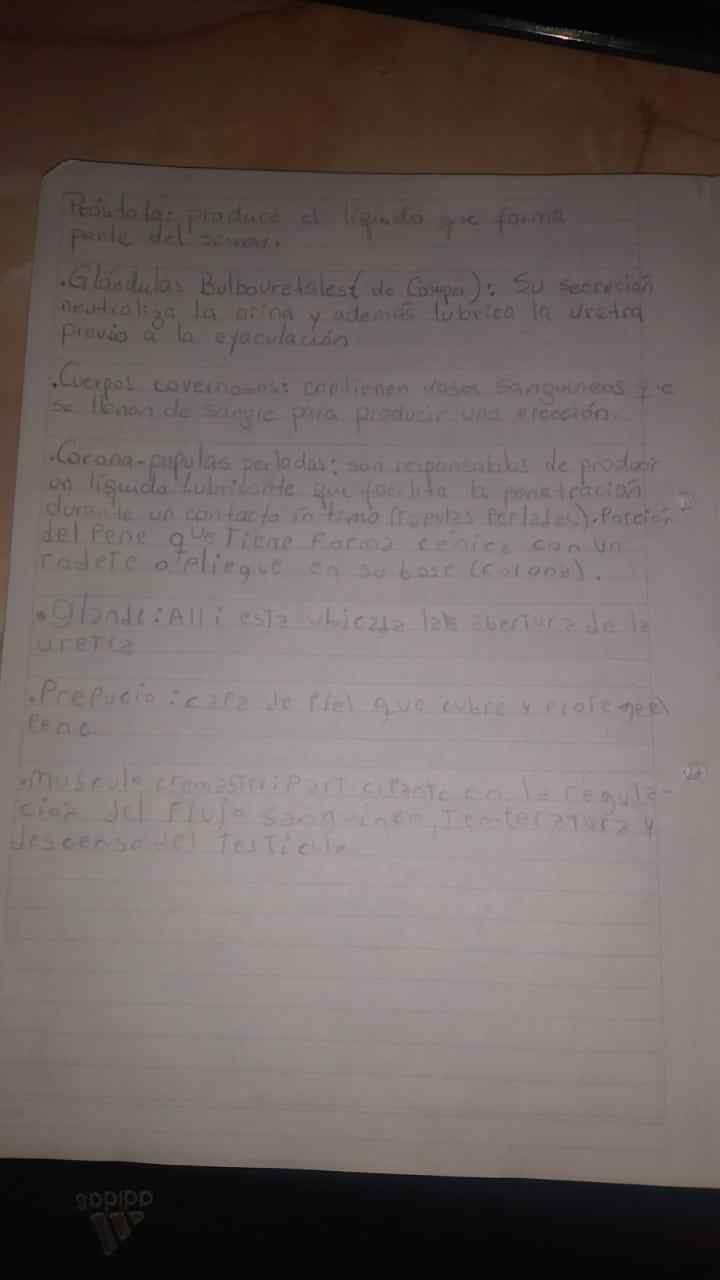 Próstata: produce el líquido que forma
parte del semen.
.Glándulas Bulbouretales (de Couper): Su secreción
neutraliza la orina y además lubrica la uretra
previo a la eyaculación
.Cuerpos cavernosos: contienen vasos sanguineos que
se llenan de sangre para producir una erección.
.Corona-papulas perladas: son responsables de producir
un líquido lubricante que facilita la penetración
durante un contacto intimo (Papulas Perlades). Porcion
del Pene que Tiene Forma cónica con un
rodete o pliegue en su base (corona).
.Glande: Alli esta ubicada la abertura de la
uretra
.Prepucio: capa de piel que cubre y protege el
pene
.Musculo cremaster: Participante en la regula-
cion del Flujo Sanguineo, Temperatura y
descenso del Testiculo
adidas